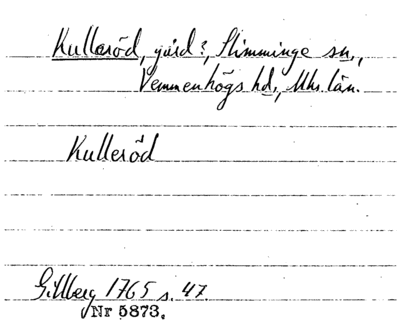 Kulleröd, gård?, Slimminge sn.,
Vemmenhögs hd., Mhs. län.
Kulleröd
Gillberg 1765 s. 47
Nr 5873.